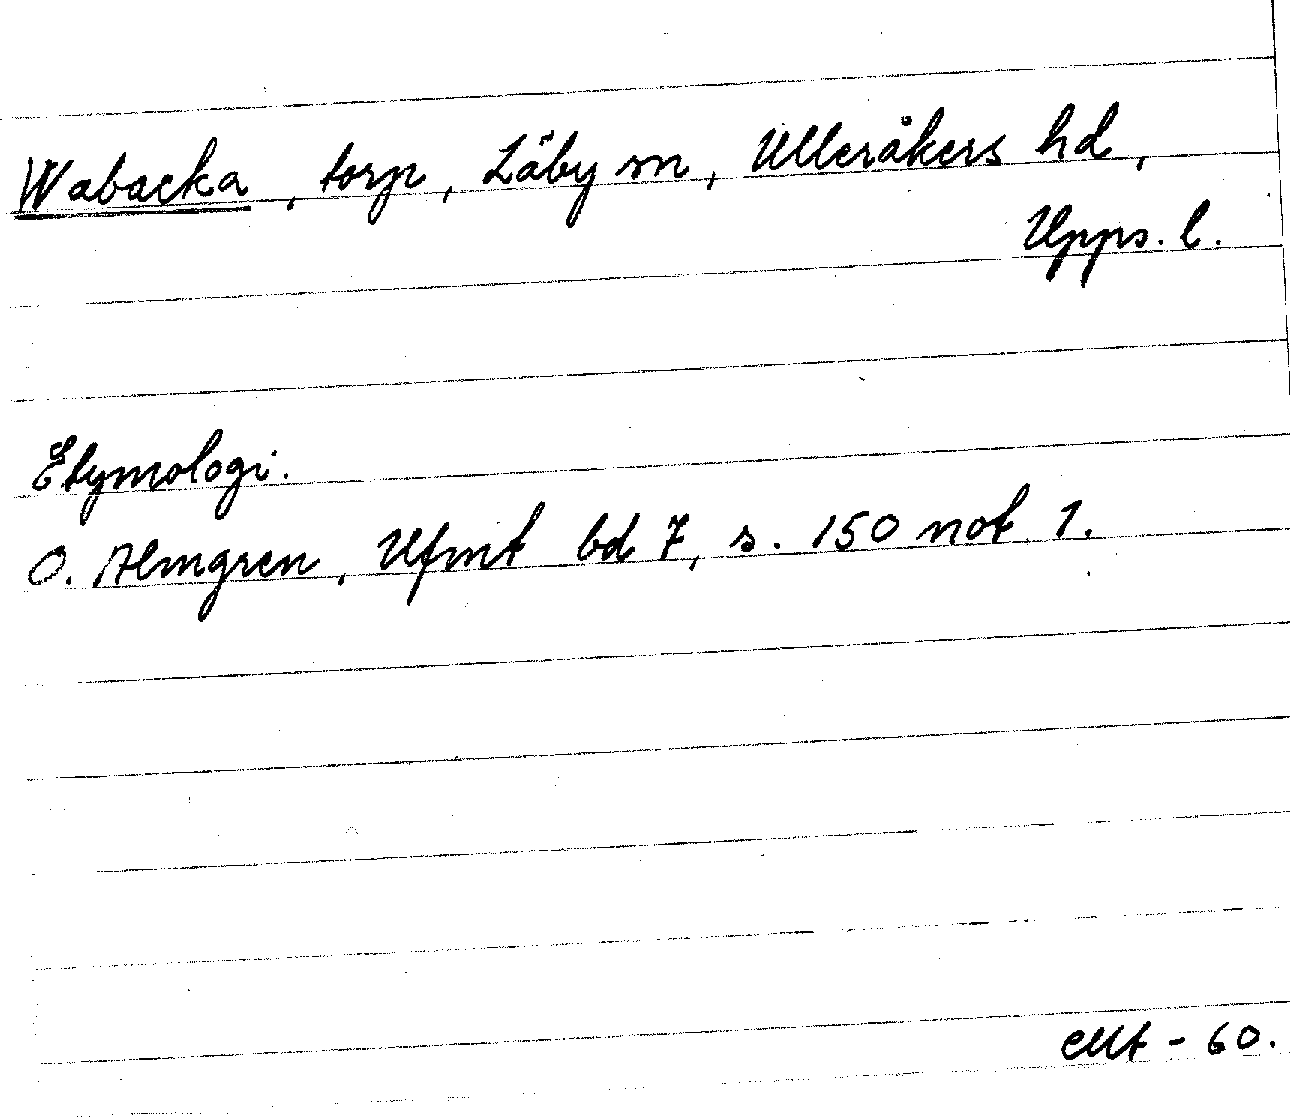 Wabacka, torp, Läby sn, Ulleråkers hd,
Upps. l.
Etymologi.
O. Almgren, Ufmt bd 7, s. 150 not 1.
- 60.